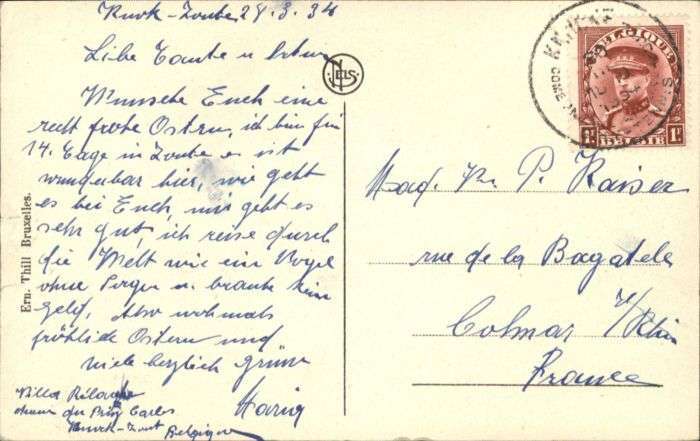 Knock-Zoute 28.3.34
Liebe Tante u
Wünsche Euch eine
recht frohe Ostern, ich bin für
14. Tage in Zoute es ist
wunderbar hier, wie geht
es bei Euch, mir geht es
sehr gut, ich reise durch
die Welt wie ein Vogel
ohne Sorgen u. brauche kein
Geld, Also nochmals
fröhliche Ostern und
viele herzlich Grüsse
Villa
Knock-Zout Belgique
Ern. Thill Bruxelles.
NELS
BELGIQUE
1F 1F
BELGIE
Mad. P. Kaiser
rue de la Bagatele
Colmar H/Rhin
France